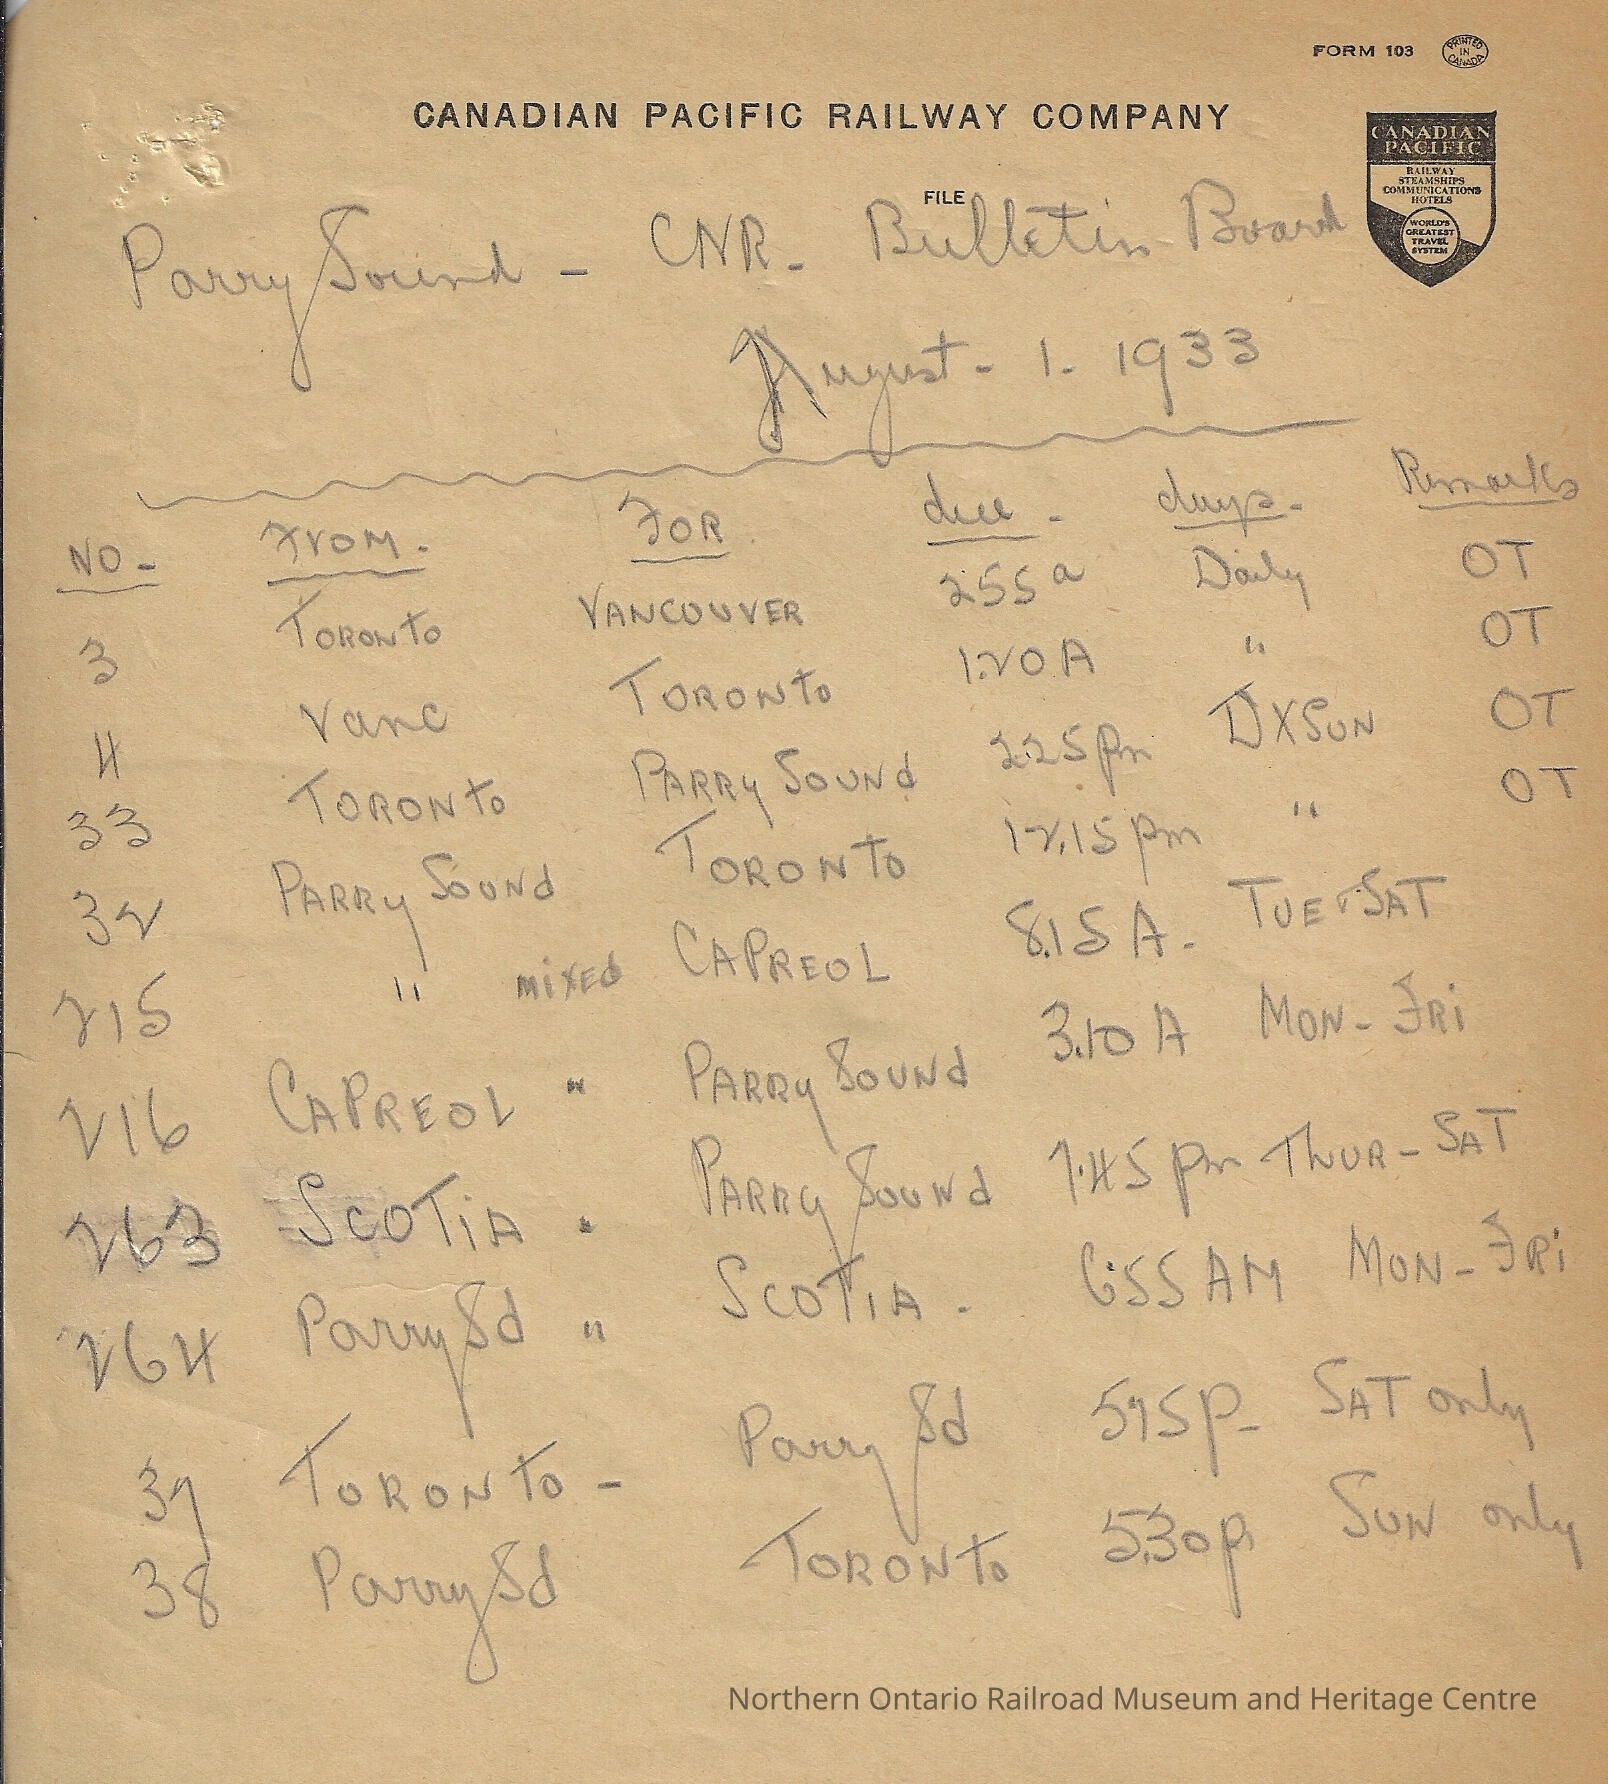 FORM 103 PRINTED IN CANADA
CANADIAN PACIFIC RAILWAY COMPANY
CANADIAN
PACIFIC
RAILWAY
STEAMSHIPS
COMMUNICATIONS
HOTELS
WORLD'S
GREATEST
TRAVEL
SYSTEM
FILE
Parry Sound - CNR. Bulletin Board
August - 1. 1933
NO. From. For due. days. Remarks
3 Toronto Vancouver 2.55 a Daily OT
4 Vanc Toronto 1.20 A " OT
33 Toronto Parry Sound 2.25 pm DXSUN OT
32 Parry Sound Toronto 12.15 pm " OT
215 " mixed Capreol 8.15 A. TUE & SAT
216 Capreol " Parry Sound 3.10 A MON - Fri
263 Scotia " Parry Sound 7.45 pm Thur - SAT
264 Parry Sd " Scotia. 6.55 AM MON - Fri
37 Toronto - Parry Sd 5 5 P. SAT only
38 Parry Sd Toronto 5.30 p. Sun only
Northern Ontario Railroad Museum and Heritage Centre